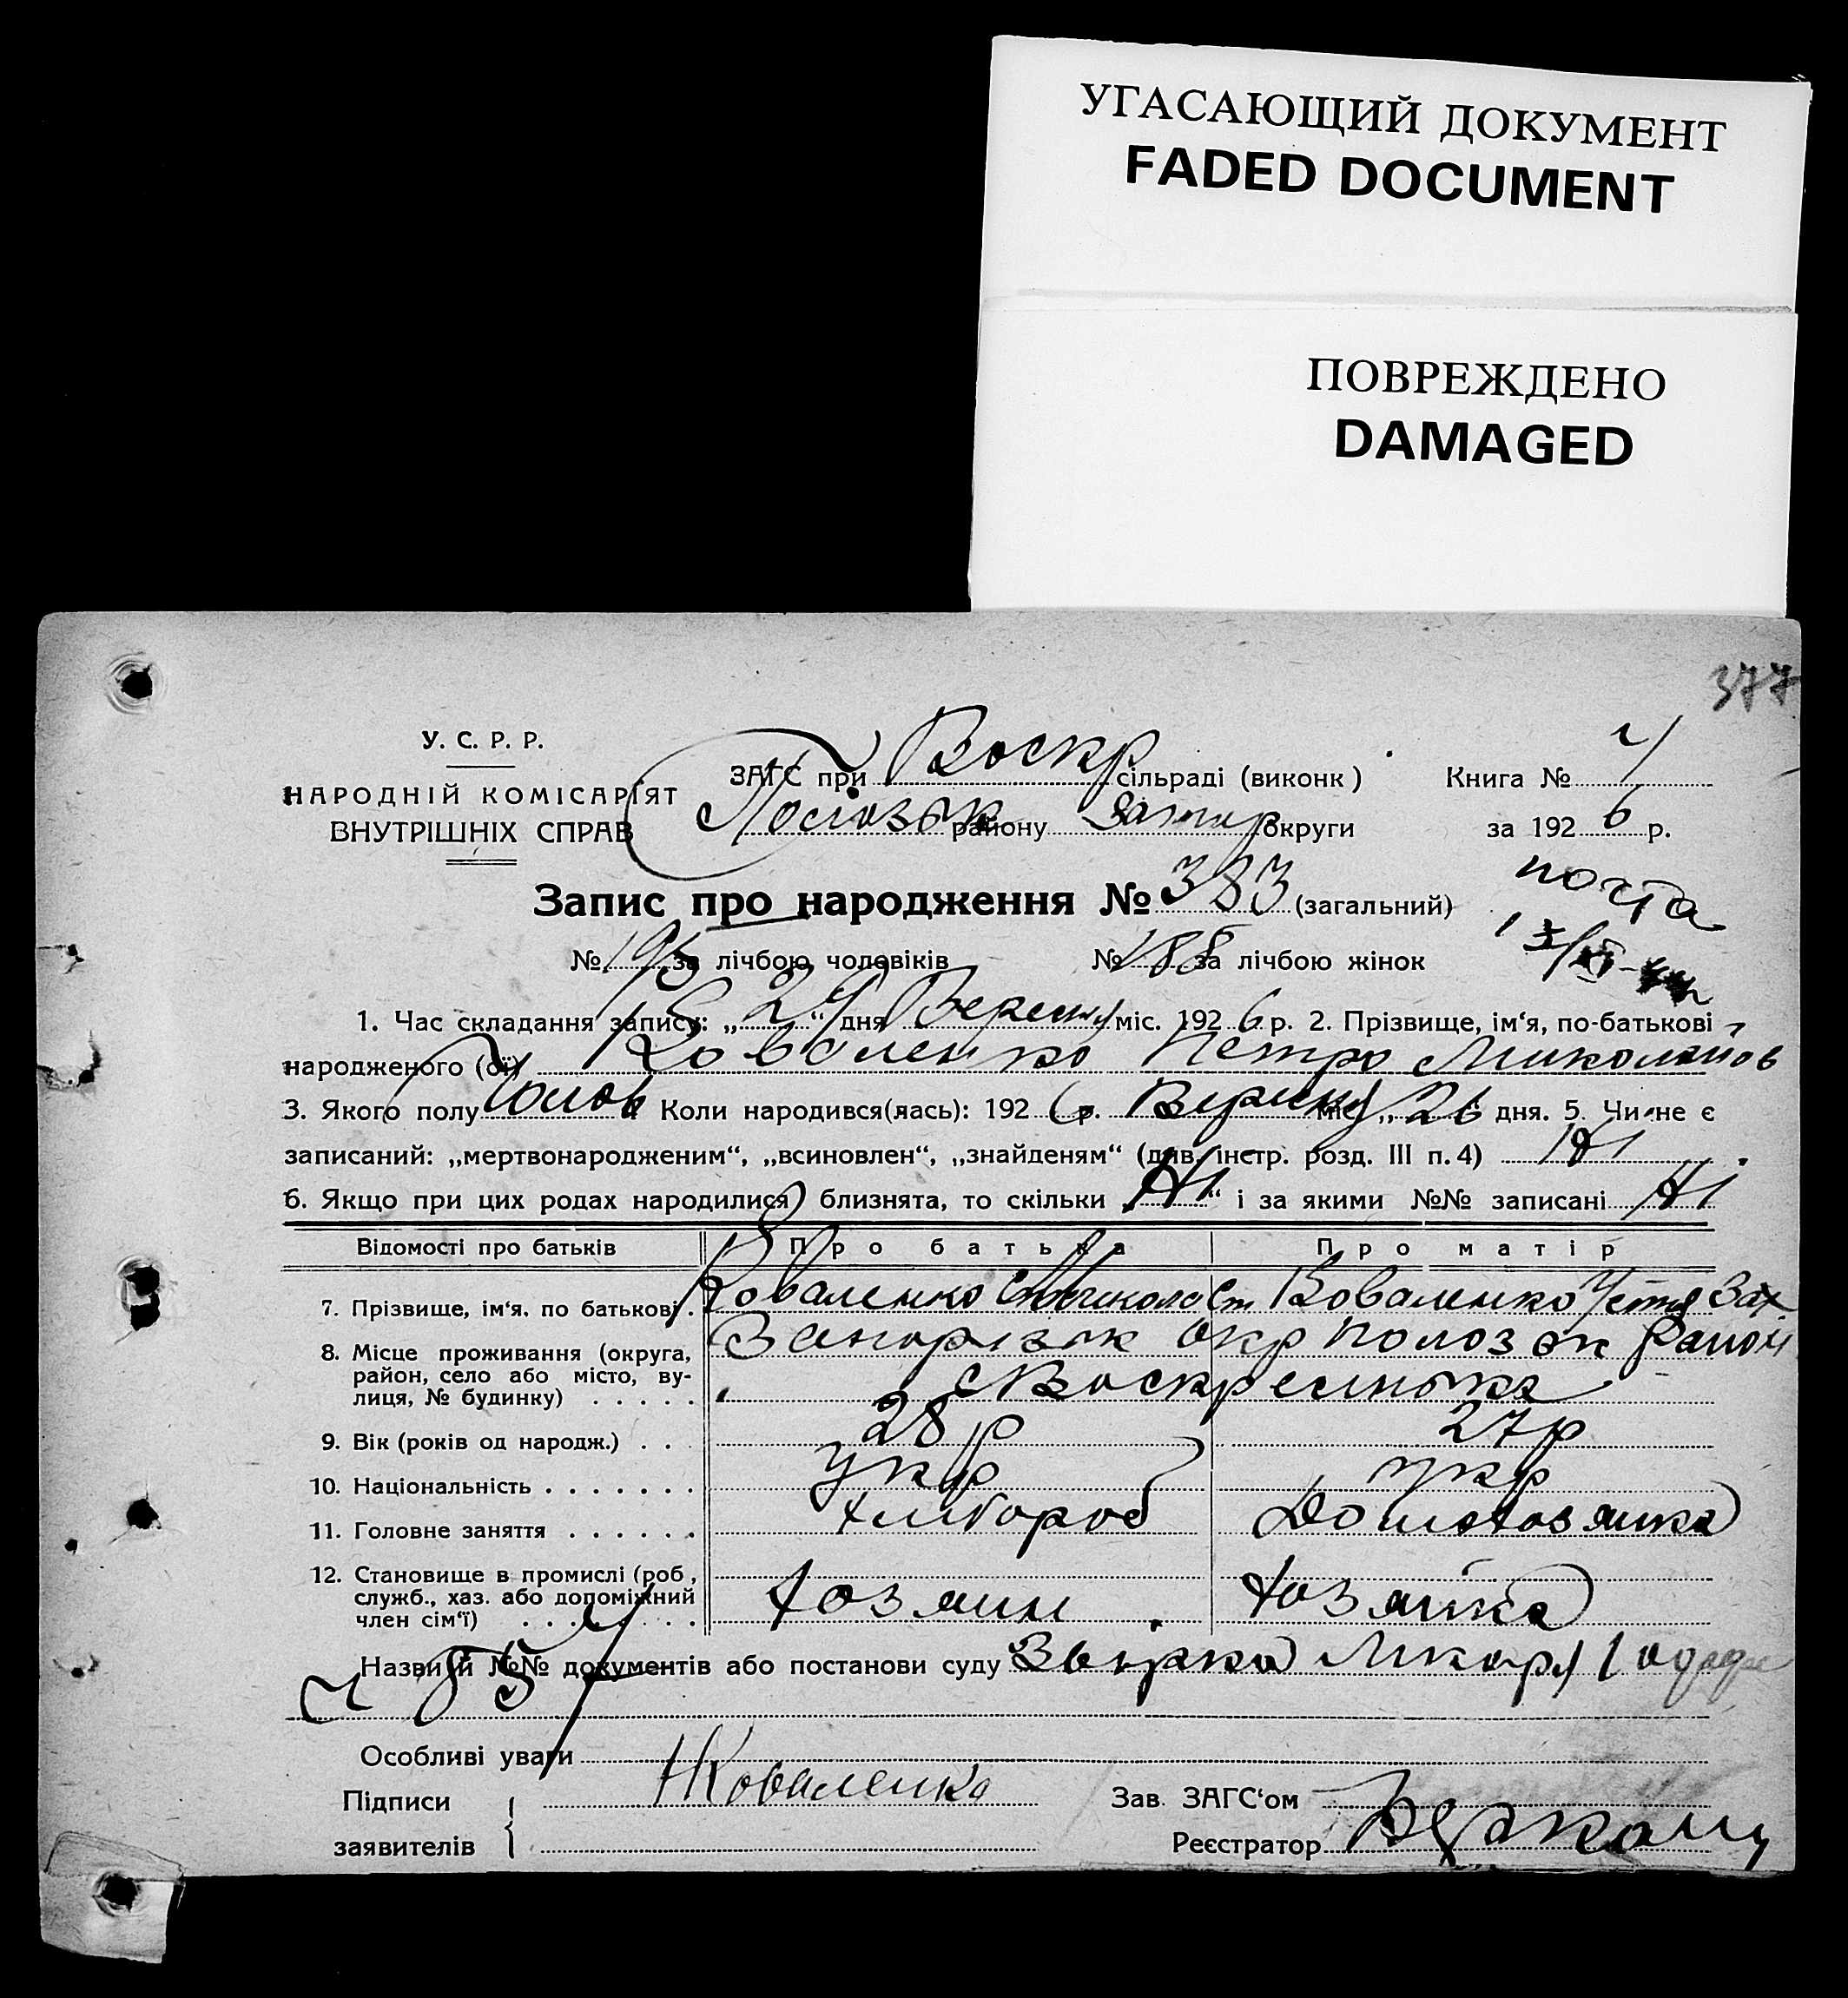 УГАСАЮЩИЙ ДОКУМЕНТ
FADED DOCUMENT
ПОВРЕЖДЕНО
DAMAGED
377
У. С. Р. Р.
НАРОДНІЙ КОМІСАРІЯТ
ВНУТРІШНІХ СПРАВ
ЗАГС при Воскр сільраді (виконк) Книга № 4
району округи за 192 6 р.
Запис про народження № 383 (загальний) почта
№ 195 за лічбою чоловіків № 188 за лічбою жінок
1. Час складання запису: „ 29 “ дня Вересня міс. 192 6 р. 2. Прізвище, ім‘я, по-батькові
народженого (ої) Коваленко Петро Миколайов
3. Якого полу Чолов Коли народився(лась): 192 6 р. Вересня міс. „ 26 дня. 5. Чи не є
записаний: „мертвонародженим“, „всиновлен“, „знайденям“ (див. інстр. розд. III п. 4) Ні
6. Якщо при цих родах народилися близнята, то скільки „ Ні “ і за якими №№ записані Ні
Відомості про батьків Про батька Про матір
7. Прізвище, ім‘я, по батькові. Коваленко Микола Ст Коваленко Устя Зах
8. Місце проживання (округа, Запорізьк окр Полозьк район
район, село або місто, ву-
лиця, № будинку) . . . . . с Воскресенька
9. Вік (років од народж.) . . . 28 р 27 р
10. Національність . . . . . . . укр укр
11. Головне заняття . . . . . . Хлібороб Домохозяйка
12. Становище в промислі (роб,
служб., хаз. або допоміжний
член сім‘ї) . . . . . . . . хозяин хозяйка
Назви й №№ документів або постанови суду
№ 857
Особливі уваги
Підписи НКоваленко Зав. ЗАГС‘ом
заявителів Реєстратор